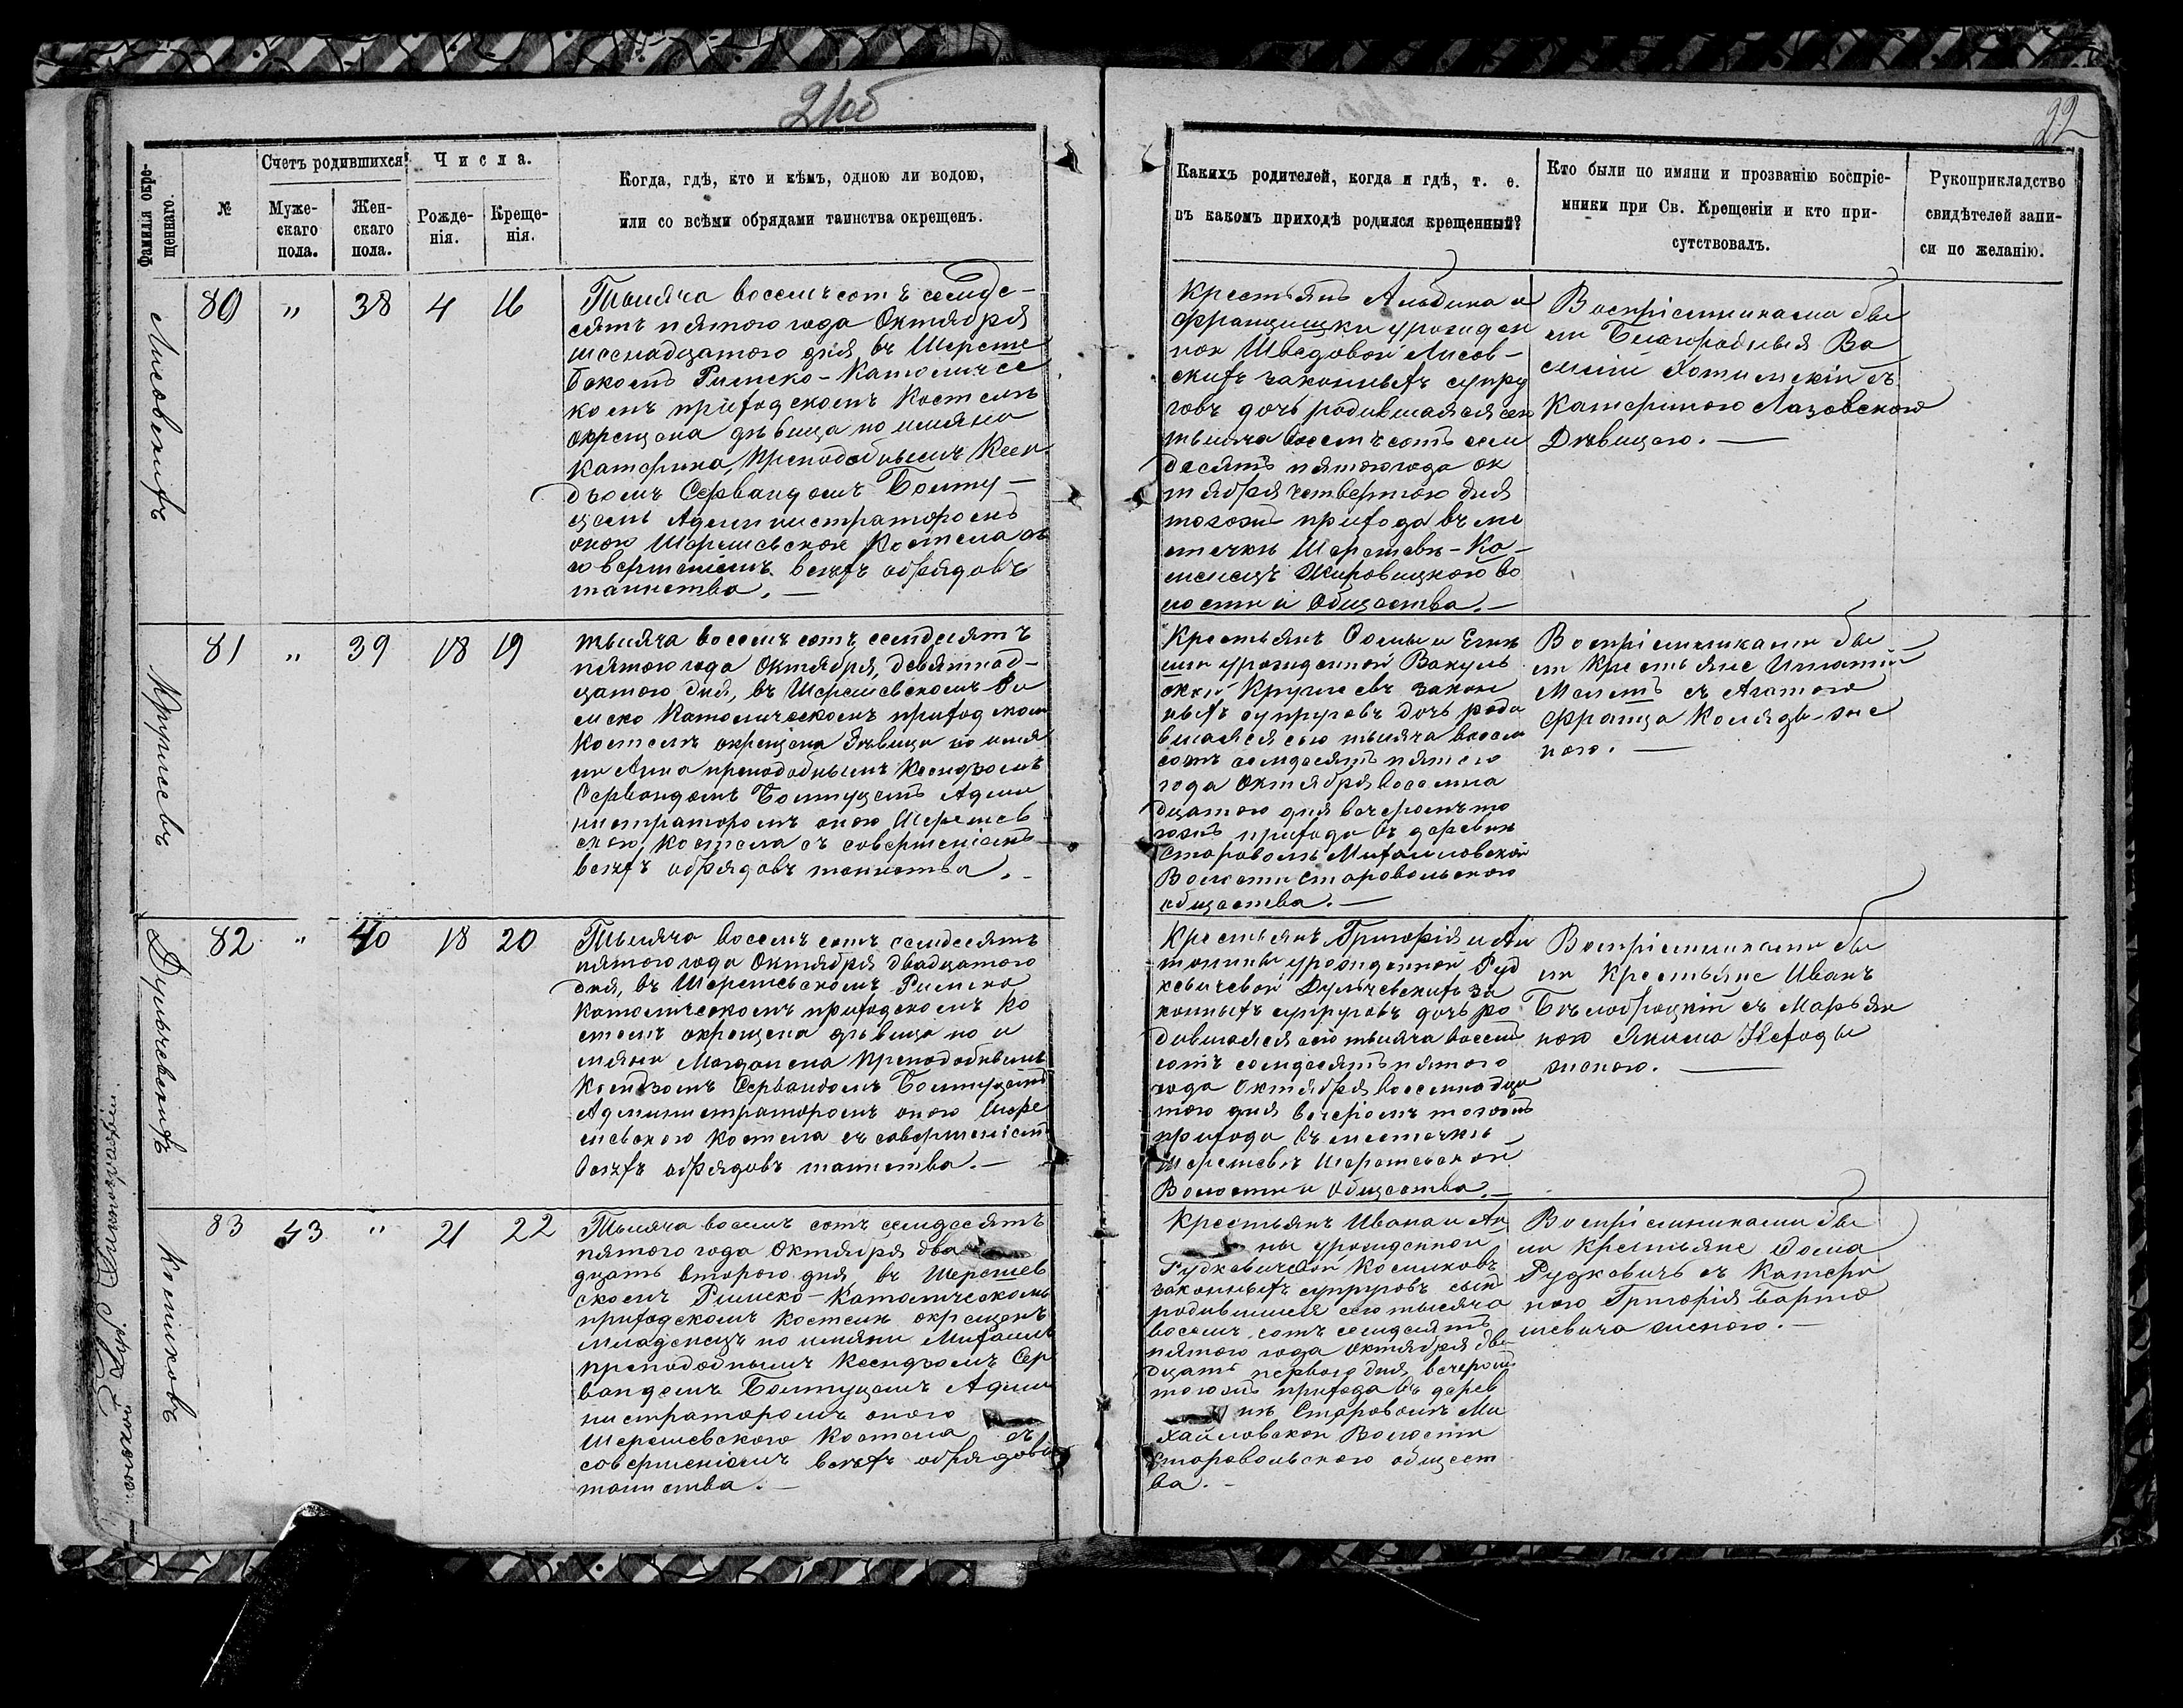 21об
22
Фамилія окре-
щеннаго.
№
Счетъ родившихся:
Муже-
скаго
пола.
Жен-
скаго
пола.
Числа.
Рожде-
нія.
Креще-
нія.
Когда, гдѣ, кто и кѣмъ, одною ли водою,
или со всѣми обрядами таинства окрещенъ.
Какихъ родителей, когда и гдѣ, т. е.
въ какомъ приходѣ родился крещенный?
Кто были по имяни и прозванію воспріе-
мники при Св. Крещеніи и кто при-
сутствовалъ.
Рукоприкладство
свидѣтелей запи-
си по желанію.
Лисовскихъ
80 " 38 4 16
Тысяча восемьсотъ семьде-
сятъ пятого года Октября
шеснадцатого дня въ Шереше
вскомъ Римско-Католичес
комъ приходскомъ Костелѣ
окрещена дѣвица по имяни
Катерина, преподобнымъ Ксен-
дзомъ Сервандомъ Болту-
цемъ Администраторомъ
оного Шерешевского Костела съ
совершеніемъ всѣхъ обрядовъ
таинства. —
Крестьянъ Альбина и
Францишки урожден
ной Шведовой Лисов-
скихъ законныхъ супру
говъ дочь родившаяся сего
тысяча восемъсотъ семь
десятъ пятого года ок
тября четвертого дня
тогожъ прихода въ мѣ
стечкѣ Шерешевѣ-Ка-
менецъ Жировицкого во
лости и Общества. —
Воспріемниками бы
ли Благородныя Ва
силій Хотимскій съ
Катериною Лазовскою
Дѣвицею. —
Круглевъ
81 " 39 18 19
тысяча восемъ сотъ семдесятъ
пятого года Октября, девятнад-
цатого дня, въ Шерешевскомъ Ри
мско Католическомъ приходском
Костелѣ окрещена дѣвица по имя
ни Анна преподобнымъ Ксендзомъ
Сервандомъ Болтуцемъ Адми
нистраторомъ оного Шерешев
ского Костела съ совершеніемъ
всѣхъ обрядовъ таинства. -
общества. —
Воспріемниками бы
ли Крестьяне Игнатій
съ Агатою
Дульчевскихъ
82 " 40 18 20
Тысяча восемъ сотъ семдесятъ
пятого года Октября двадцатого
дня, въ Шерешевскомъ Римско
Католическомъ приходскомъ Ко
стелѣ окрещена дѣвица по и
мяни Магдалена преподобнымъ
Ксендзомъ Сервандомъ Болтуцемъ
Администраторомъ оного Шере
шевского Костела съ совершеніемъ
всѣхъ обрядовъ таинства. —
Крестьянъ Григорія и Ан
тонины урожденной Руд
кевичевой Дульчевскихъ за
конныхъ супруговъ дочь ро
дившаяся сего тысяча восемъ
сотъ семдесятъ пятого
года Октября восемнадца
того дня вечеромъ тогожъ
прихода въ местечкѣ
Шерешевѣ Шерешевской
Волости и Общества. —
Воспріемниками бы
ли Крестьяне Иванъ
Бѣлобродскій съ Марьян
ною Якима
женою. —
Косиковъ
83 43 " 21 22
Тысяча восемъ сотъ семдесятъ
пятого года Октября два
дцать второго дня, въ Шерешев
скомъ Римско-Католическомъ
приходскомъ Костелѣ окрещенъ
младенецъ по имяни Михаилъ
преподобнымъ Ксендзомъ Сер
вандомъ Болтуцемъ Адми
нистраторомъ оного
Шерешевского Костела съ
совершеніемъ всѣхъ обрядовъ
таинства. —
Крестьянъ Ивана и Ан
ны урожденной
Рудкевичевой Косиковъ
законныхъ супруговъ сынъ
родившійся сего тысяча
восемъ сотъ семдесятъ
пятого года Октября два
дцать первого дня, вечеромъ
тогожъ прихода въ дерев
нѣ Староволѣ Ми
хайловской Волости
Старовольского общест
ва. -
Воспріемниками бы
ли Крестьяне Фома
Рудкевичъ съ Катери
ною Григорія Барто
шевича женою. —